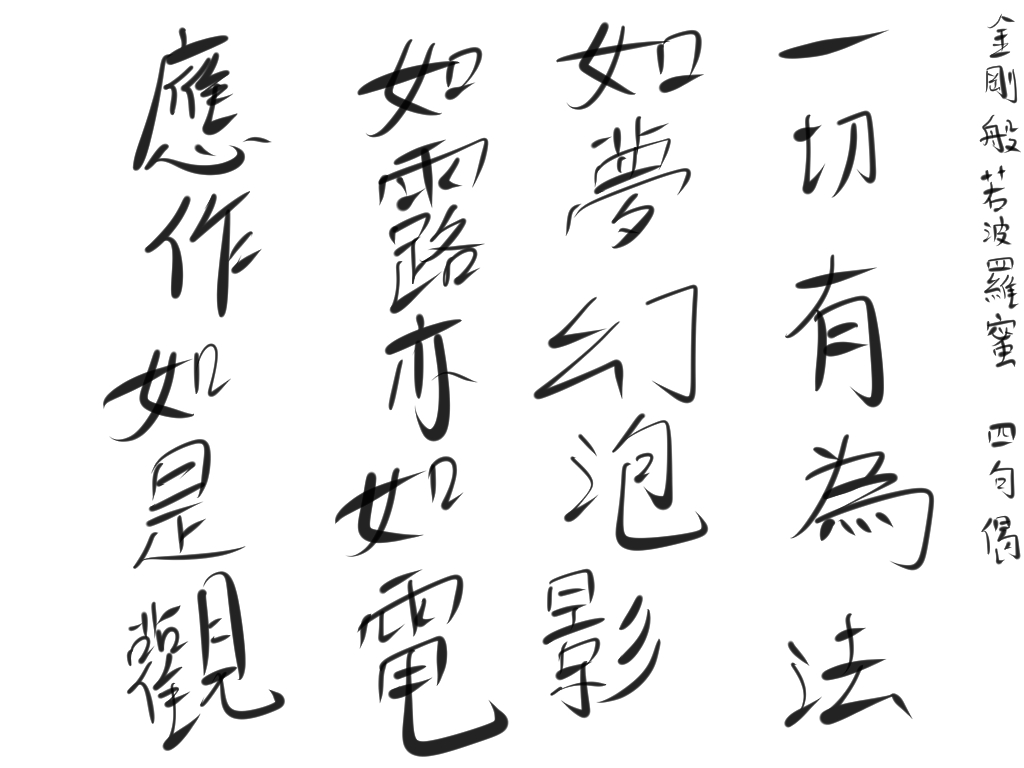 金剛般若波羅蜜 四句偈
一切有為法
如夢幻泡影
如露亦如電
應作如是觀